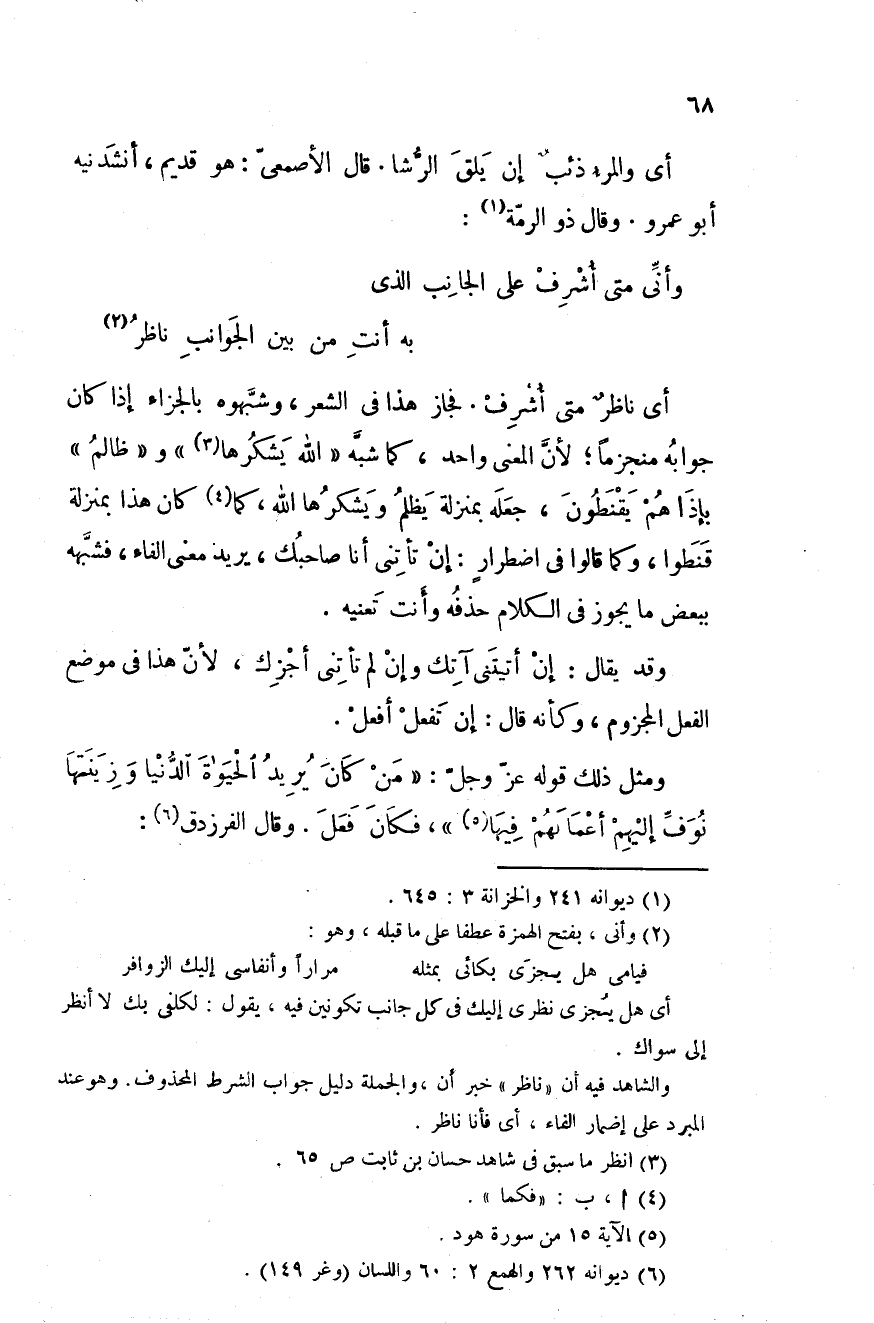 ٦٨
أى والمرء ذئبٌ إن يَلقَ الرُّشا . قال الأصمعىّ : هو قديم ، أنشَدنيه
أبو عمرو . وقال ذو الرمّة(١) :
وأنِّى متى أُشْرِفْ على الجانِب الذى
به أنتِ من بين الجَوانبِ ناظرُ(٢)
أى ناظرٌ متى أُشْرِفْ . فجاز هذا فى الشعر ، وشبَّهوه بالجزاء إذا كان
جوابُه منجزماً ؛ لأنَّ المعنى واحد ، كما شبَّه « الله يَشكُرُها(٣) » و « ظالمُ »
بإِذَا هُمْ يَقْنَطُونَ ، جعَلَه بمنزلة يَظلمُ ويَشكرُها الله ، كما(٤) كان هذا بمنزلة
قَنَطوا ، وكما قالوا فى اضطرارٍ : إنْ تأتِنى أنا صاحبُك ، يريد معنى الفاء ، فشبَّهه
ببعض ما يجوز فى الكلام حذفُه وأَنت تَعنيه .
وقد يقال : إنْ أتيتَنى آتِك وإنْ لم تأتِنى أجْزِك ، لأنّ هذا فى موضع
الفعل المجزوم ، وكأنه قال : إن تَفعلْ أفعلْ .
ومثل ذلك قوله عزّ وجلّ : « مَنْ كَانَ يُرِيدُ ٱلْحَيَوٰةَ ٱلدُّنْيا وَزِينَتَهَا
نُوَفِّ إِلَيْهِمْ أعْمَالَهُمْ فِيهَا(٥) » ، فكانَ فَعَلَ . وقال الفرزدق(٦) :
(١) ديوانه ٢٤١ والخزانة ٣ : ٦٤٥ .
(٢) وأنى ، بفتح الهمزة عطفا على ما قبله ، وهو :
فيامى هل يجزى بكائى بمثله مراراً وأنفاسى إليك الزوافر
أى هل يُجزى نظرى إليك فى كل جانب تكونين فيه ، يقول : لكلفى بك لا أنظر
إلى سواك .
والشاهد فيه أن «ناظر» خبر أن ، والجملة دليل جواب الشرط المحذوف . وهو عند
المبرد على إضمار الفاء ، أى فأنا ناظر .
(٣) انظر ما سبق فى شاهد حسان بن ثابت ص ٦٥ .
(٤) ا ، ب : «فكما » .
(٥) الآية ١٥ من سورة هود .
(٦) ديوانه ٢٦٢ والهمع ٢ : ٦٠ واللسان (وغر ١٤٩) .